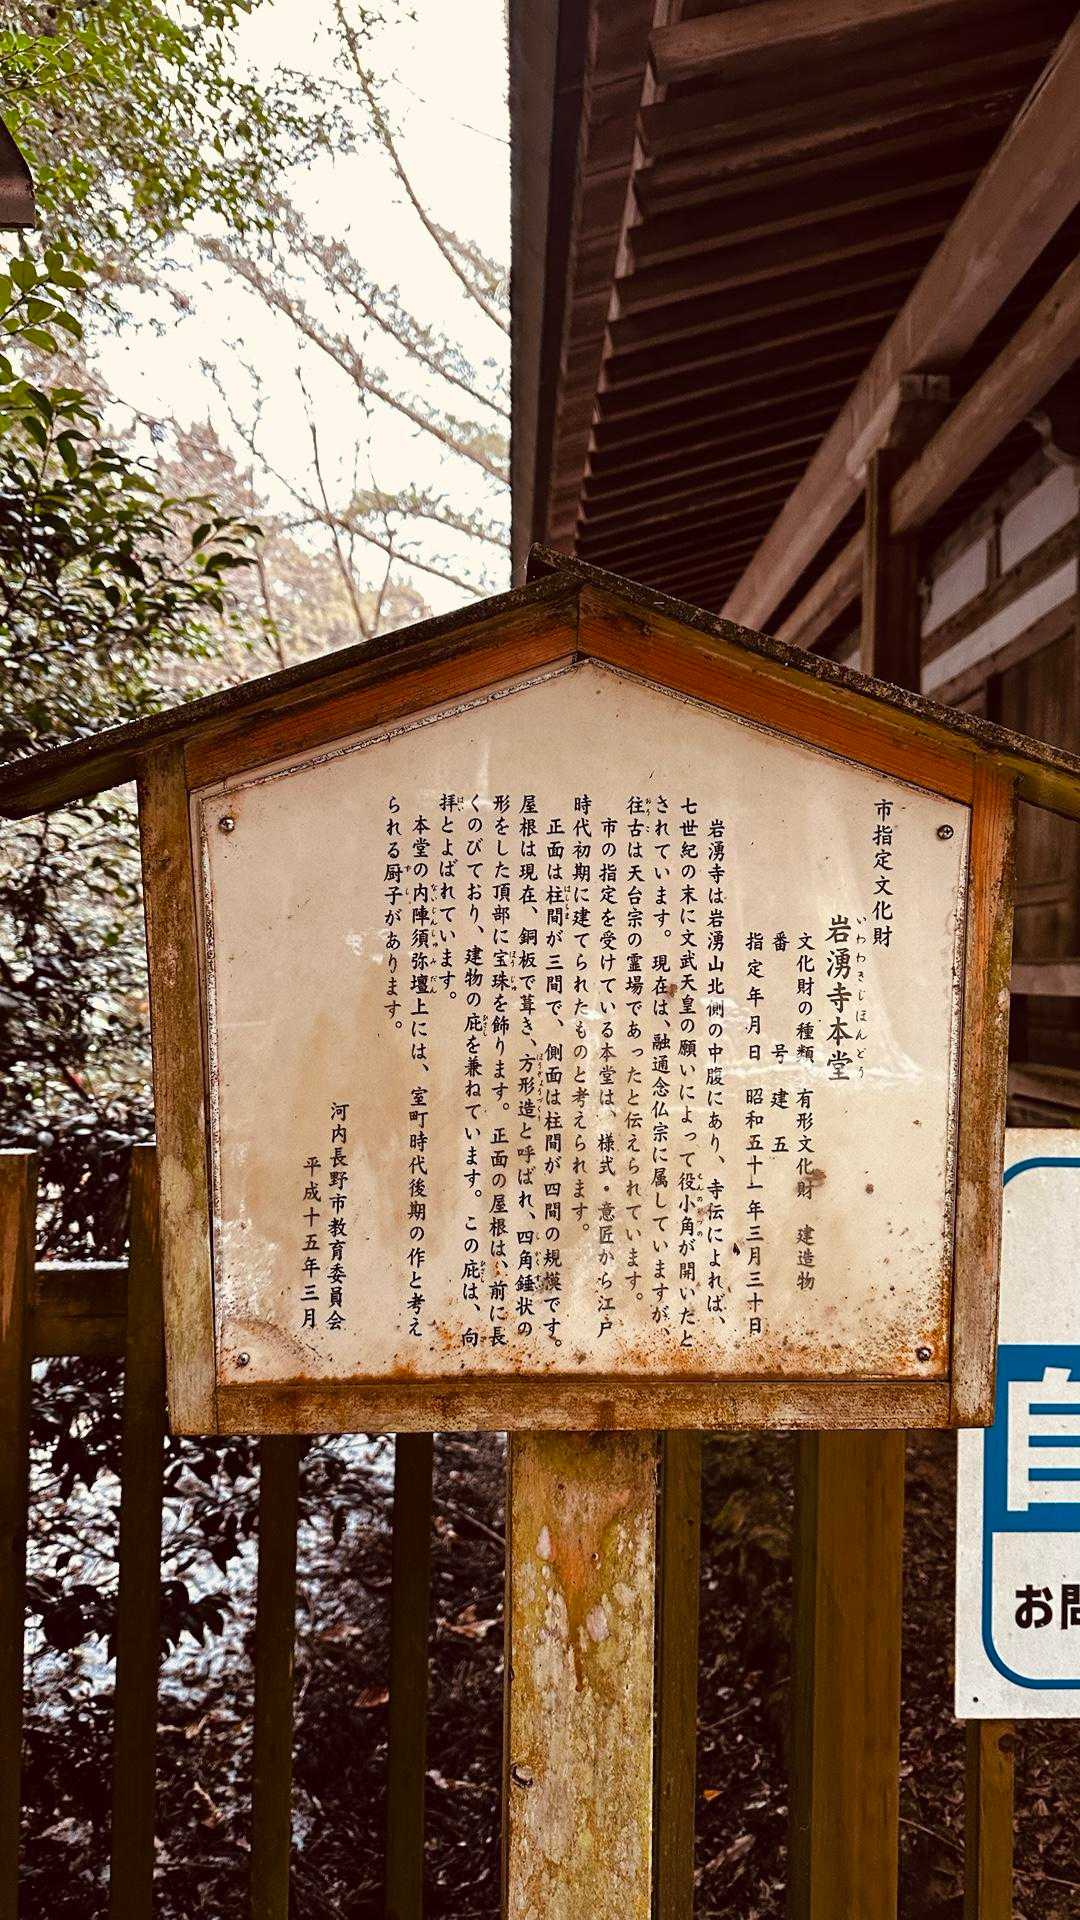 市指定文化財
いわわきじほんどう
岩湧寺本堂
文化財の種類 有形文化財 建造物
番号 建五
指定年月日 昭和五十一年三月三十日
岩湧寺は岩湧山北側の中腹にあり、寺伝によれば、
七世紀の末に文武天皇の願いによって役小角が開いたと
されています。現在は、融通念仏宗に属していますが、
往古は天台宗の霊場であったと伝えられています。
市の指定を受けている本堂は、様式・意匠から江戸
時代初期に建てられたものと考えられます。
正面は柱間が三間で、側面は柱間が四間の規模です。
屋根は現在、銅板で葺き、方形造と呼ばれ、四角錘状の
形をした頂部に宝珠を飾ります。正面の屋根は、前に長
くのびており、建物の庇を兼ねています。この庇は、向
拝とよばれています。
本堂の内陣須弥壇上には、室町時代後期の作と考え
られる厨子があります。
河内長野市教育委員会
平成十五年三月
自
お問